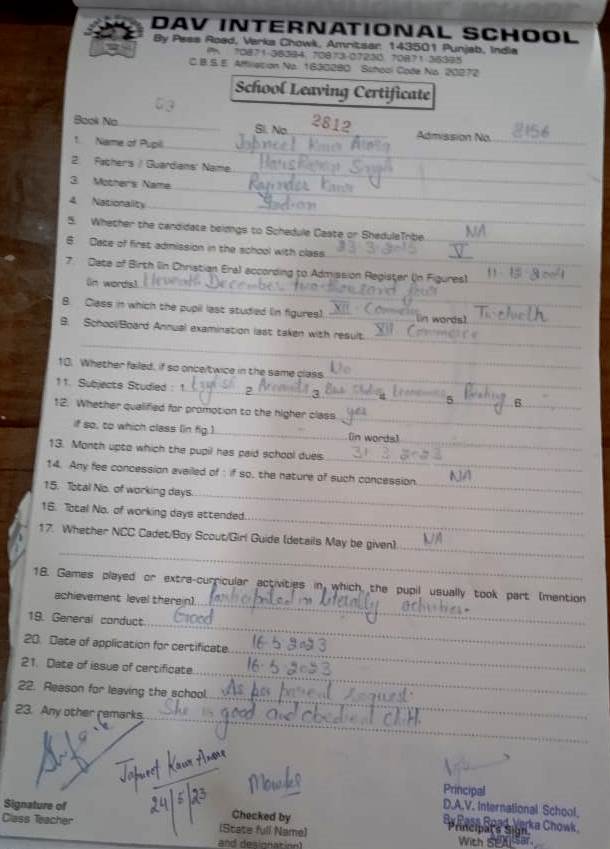 DAV INTERNATIONAL SCHOOL
By Pass Road, Verka Chowk, Amritsar. 143501 Punjab, India
Ph. 70871-36394, 70873-07230, 70871-36395
C.B.S.E. Affiliation No. 1630280 School Code No. 20272
School Leaving Certificate
Book No. Sl. No. 2812 Admission No. 8156
1. Name of Pupil Japneet Kaur
2. Father's / Guardians' Name Singh
3. Mother's Name Rajinder Kaur
4. Nationality Indian
5. Whether the candidate belongs to Schedule Caste or SheduleTribe NA
6. Date of first admission in the school with class 23 3 2015 V
7. Date of Birth (in Christian Era) according to Admission Register (in Figures) 11-12-2004
(in words) Eleventh December two thousand four
8. Class in which the pupil last studied (in figures) XII - Commerce (in words) Twelveth
9. School/Board Annual examination last taken with result XII Commerce
10. Whether failed, if so once/twice in the same class No
11. Subjects Studied : 1. English 2. Accounts 3. Bus. Studies 4. Economics 5. Painting 6. -
12. Whether qualified for promotion to the higher class yes
if so, to which class (in fig.) (in words)
13. Month upto which the pupil has paid school dues 31 3 2023
14. Any fee concession availed of : if so, the nature of such concession NA
15. Total No. of working days
16. Total No. of working days attended
17. Whether NCC Cadet/Boy Scout/Girl Guide (details May be given) NA
18. Games played or extra-curricular activities in which the pupil usually took part (mention
achievement level therein) Participated in literally activities.
19. General conduct Good
20. Date of application for certificate 16-5-2023
21. Date of issue of certificate 16-5-2023
22. Reason for leaving the school As per parent request.
23. Any other remarks She is good and obedient
Japneet Kaur
24/5/23
Principal
D.A.V. International School,
By Pass Road, Verka Chowk,
Amritsar.
Signature of
Class Teacher
Checked by
(State full Name)
and designation)
Principal's Sign.
With SEAL